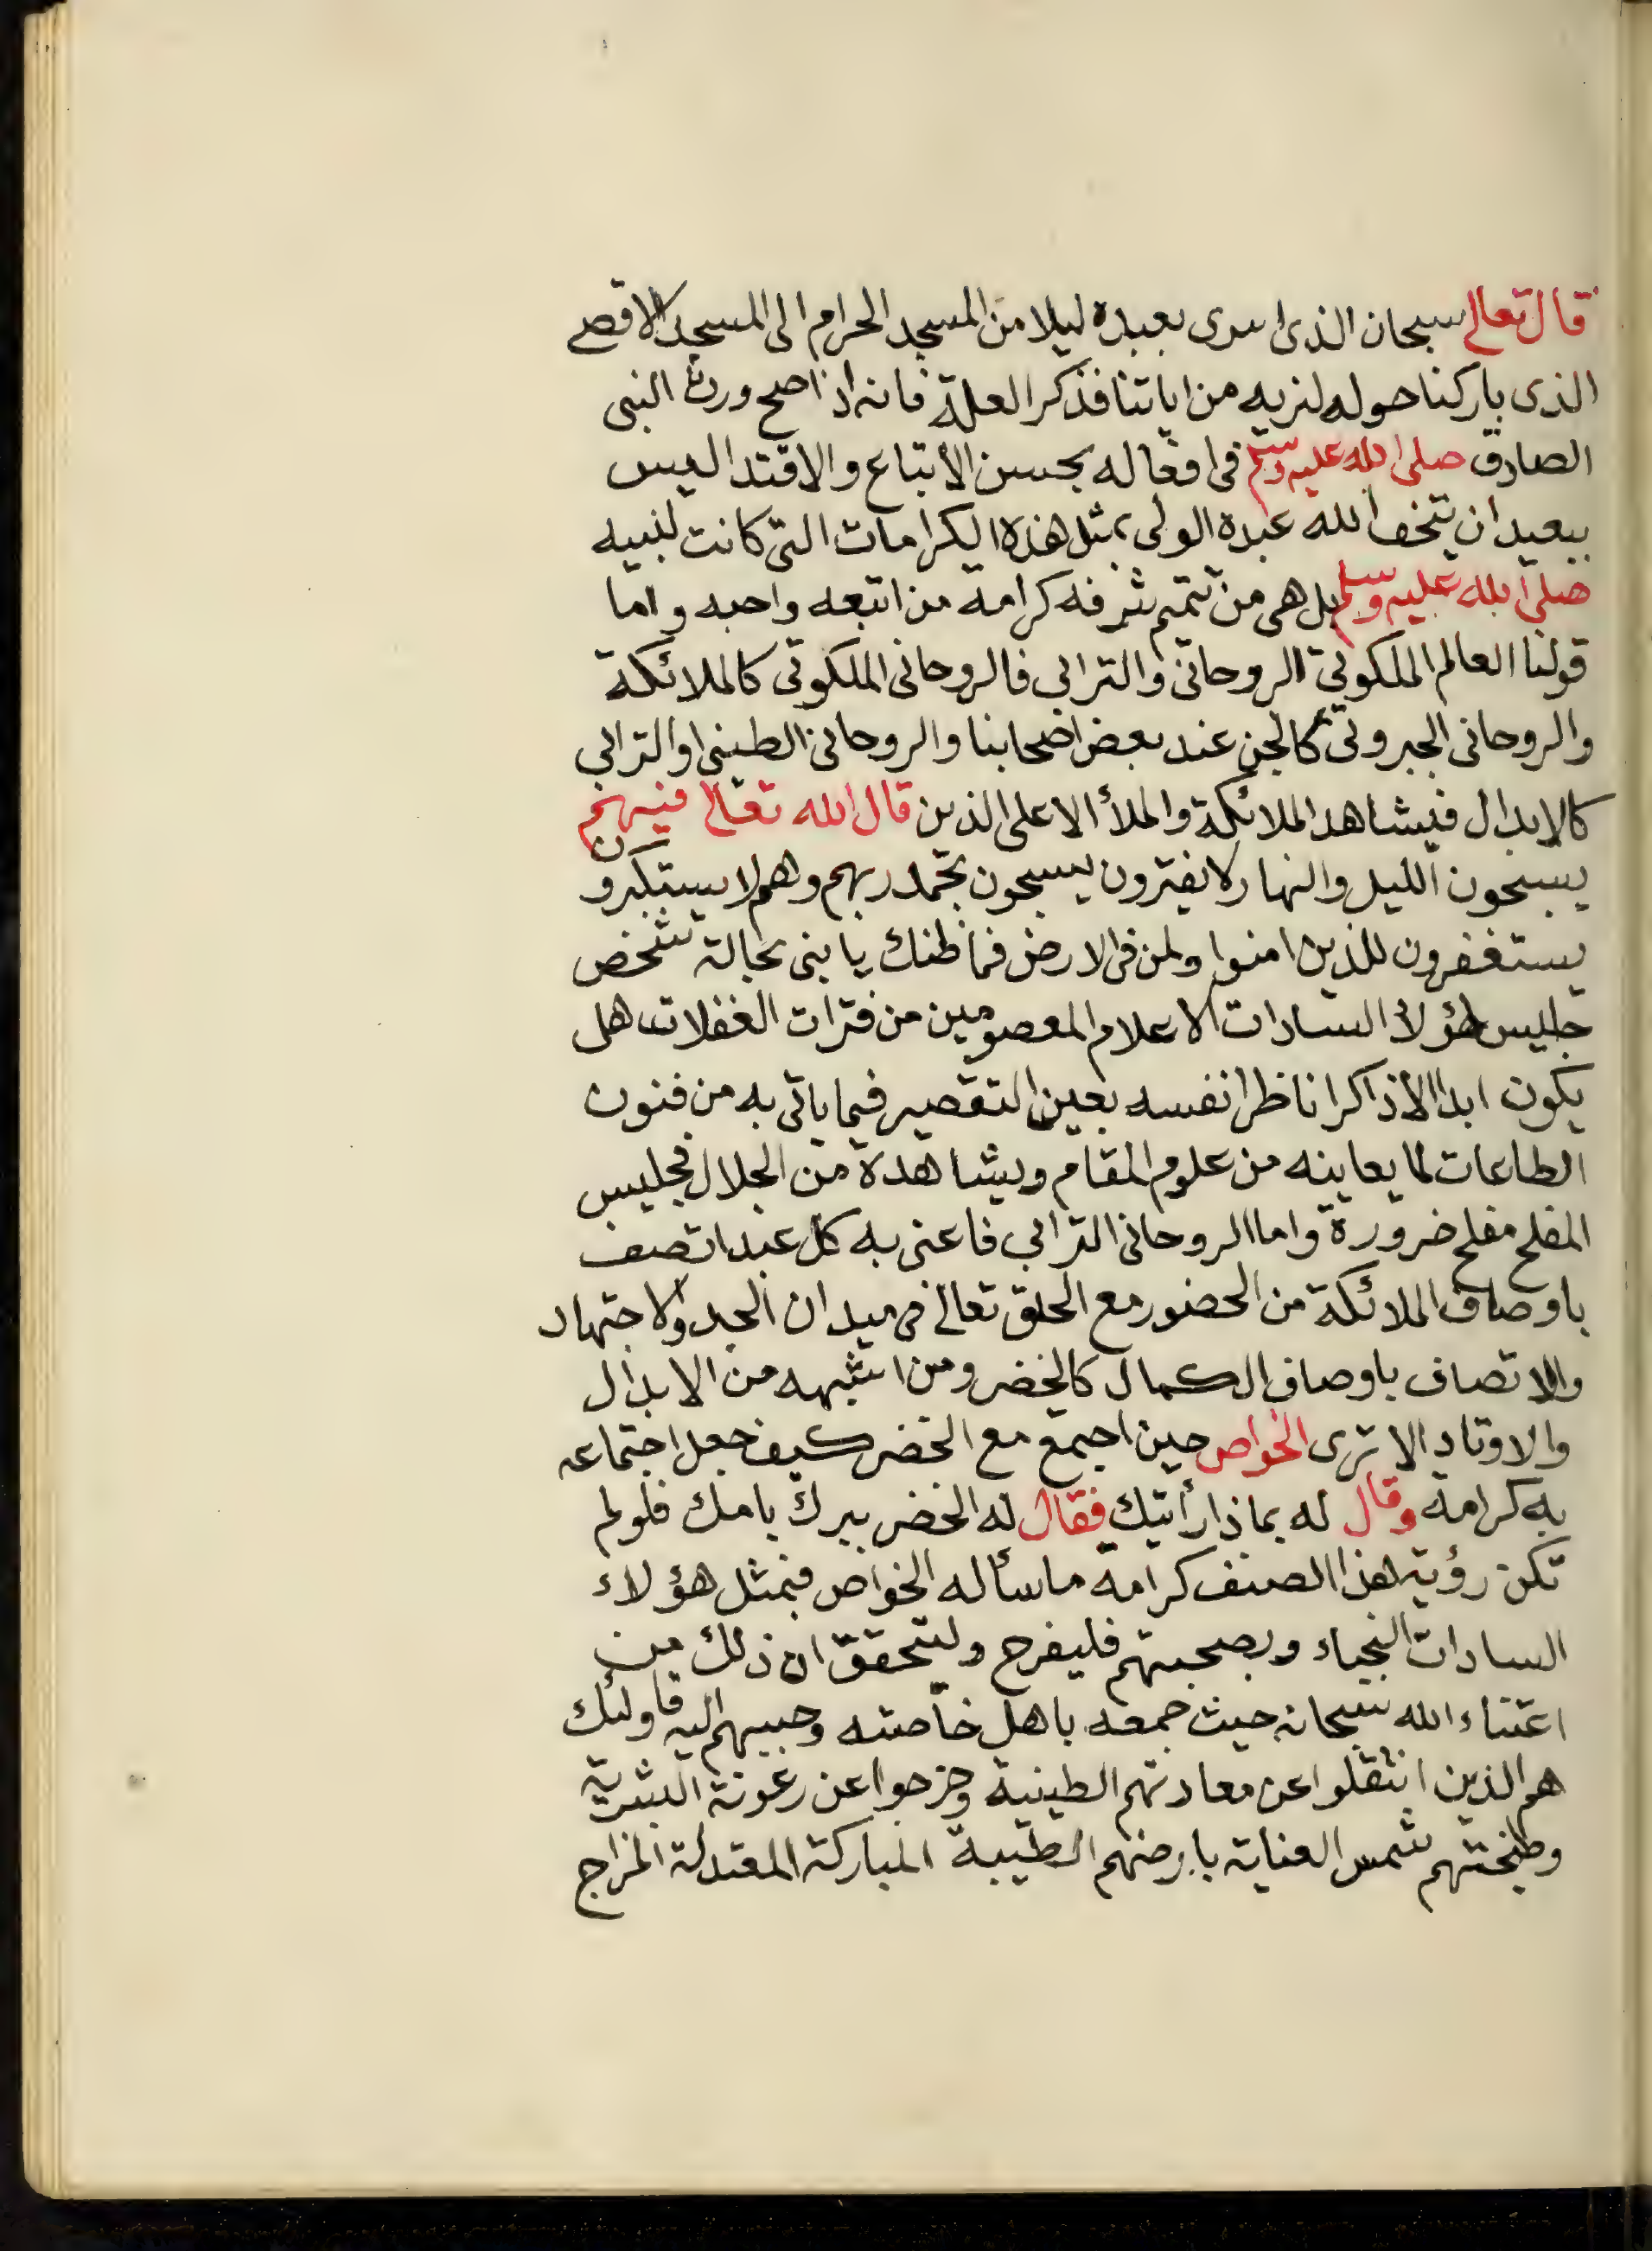 قال تعالى سبحان الذى اسرى بعبده ليلا من المسجد الحرام الى المسجد الاقصى
الذى باركنا حوله لنريه من اياتنا فذكر العلة فانه اذا صح ورث النبى
الصادق صلى الله عليه وسلم فى افعاله بحسن الاتباع والاقتدا ليس
ببعيد ان يتخف الله عبده الولى بمثل هذه الكرامات التى كانت لنبيه
صلى الله عليه وسلم بل هى من تتمة شرفه كرامة من اتبعه واحبه واما
قولنا العالم الملكوتى الروحانى والترابى فالروحانى الملكوتى كالملائكة
والروحانى الجبروتى كالجن عند بعض اصحابنا والروحانى الطينى او الترابى
كالابدال فيشاهد الملائكة والملأ الاعلى الذين قال الله تعالى فيهم
يسبحون الليل والنهار لا يفترون يسبحون بحمد ربهم وهم لا يستكبرون
يستغفرون للذين امنوا ولمن فى الارض فما ظنك يا بنى بحالة شخص
جليس هؤلاء السادات الاعلام المعصومين من فترات الغفلات هل
يكون ابدا الا ذاكرا ناظرا نفسه بعين التقصير فيما ياتى به من فنون
الطاعات لما يعاينه من علوم المقام ويشاهدة من الجلال فجليس
المفلح مفلح ضرورة واما الروحانى الترابى فاعنى به كل عبد اتصف
باوصاف الملائكة من الحضور مع الحق تعالى فى ميدان الجد والاجتهاد
والاتصاف باوصاف الكمال كالخضر ومن اشبهه من الابدال
والاوتاد الا ترى الخواص حين اجتمع مع الخضر كيف جعل اجتماعه
به كرامة وقال له بماذا رأيتك فقال له الخضر ببرك بامك فلو لم
تكن رؤية هذا الصنف كرامة ما سأله الخواص فبمثل هؤلاء
السادات النجباء وبصحبتهم فليفرح وليتحقق ان ذلك من
اعتناء الله سبحانه حيث جمعه باهل خاصته وحببهم اليه فاولئك
هم الذين انتقلوا عن معادنهم الطينية وخرجوا عن رعونة البشرية
وطبختهم شمس العناية بارضهم الطيبة المباركة المعتدلة المزاج